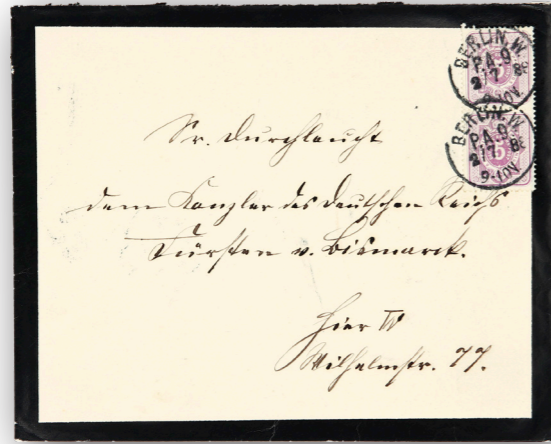 BERLIN, W.
P.A.9.
2/7 8
9-10V.
BERLIN, W.
P.A.9.
2/7 8
9-10V.
5
Sr. Durchlaucht
dem Kanzler des deutschen Reichs
Fürsten v. Bismarck.
Hier W
Wilhelmstr. 77.